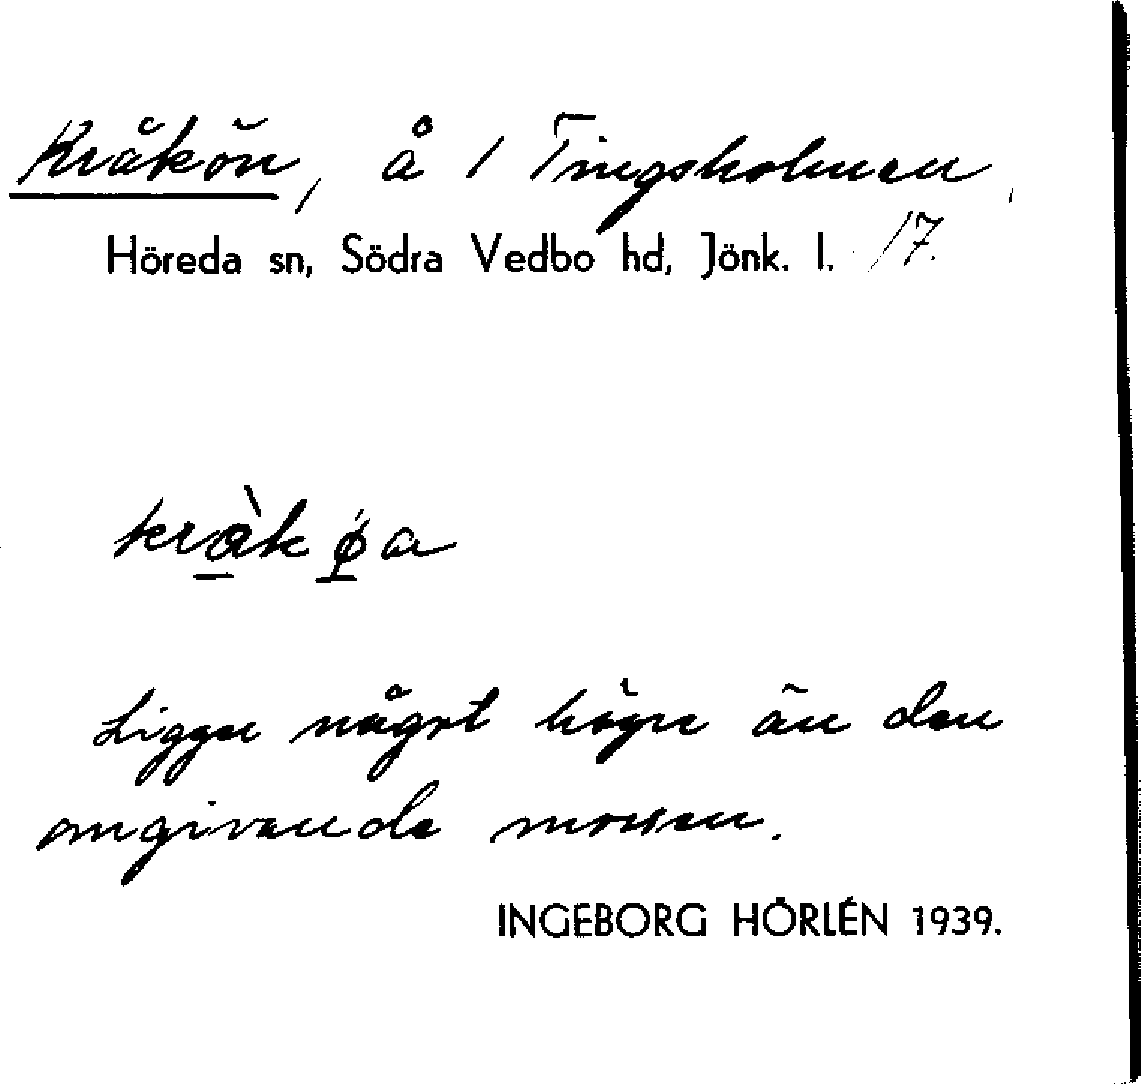 Kråkön, å 1 Tingsholmen.
Höreda sn, Södra Vedbo hd, Jönk. l. 17.
Ligger något högre än den
omgivande mossen.
INGEBORG HÖRLÉN 1939.